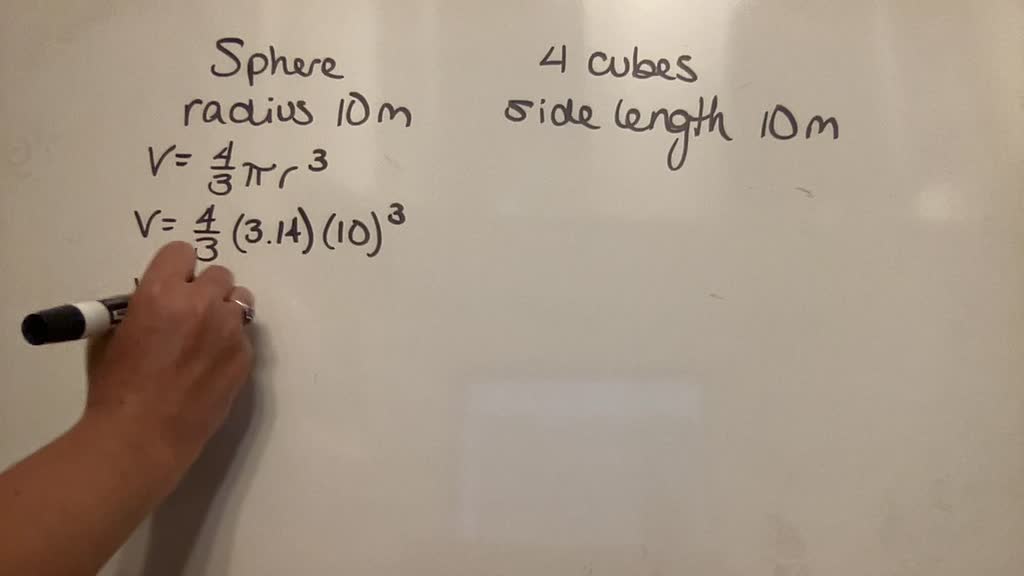 Sphere
radius 10m
V= 4/3 πr³
V= 4/3 (3.14)(10)³
4 cubes
side length 10m